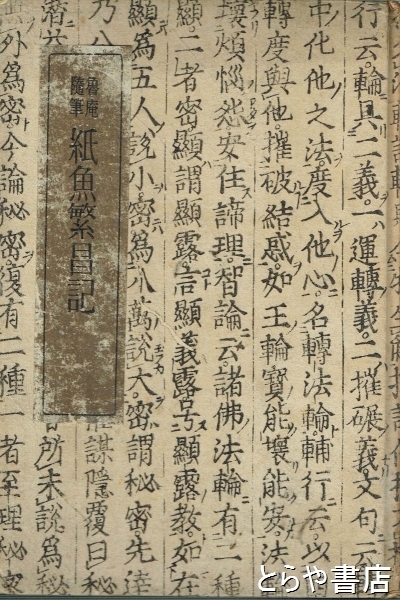 行云。輪具二義。一運轉義。二摧碾義。文句云
中化他之法度入他心。名轉法輪輔行云。以
轉度與他。摧破結惑。如王輪寶能壞能安。法
壞煩惱怨安住諦理。智論云諸佛法輪有二種
顯。二者密。顯謂顯露言顯義露。号顯露教。如在
顯為五人說小。密為八萬說大。密謂秘密。先達
乃八
謀隱覆曰秘
魯庵
隨筆
紙魚繁昌記
所未説為秘
外為密。今論秘密復有二種一者至理秘密
とらや書店